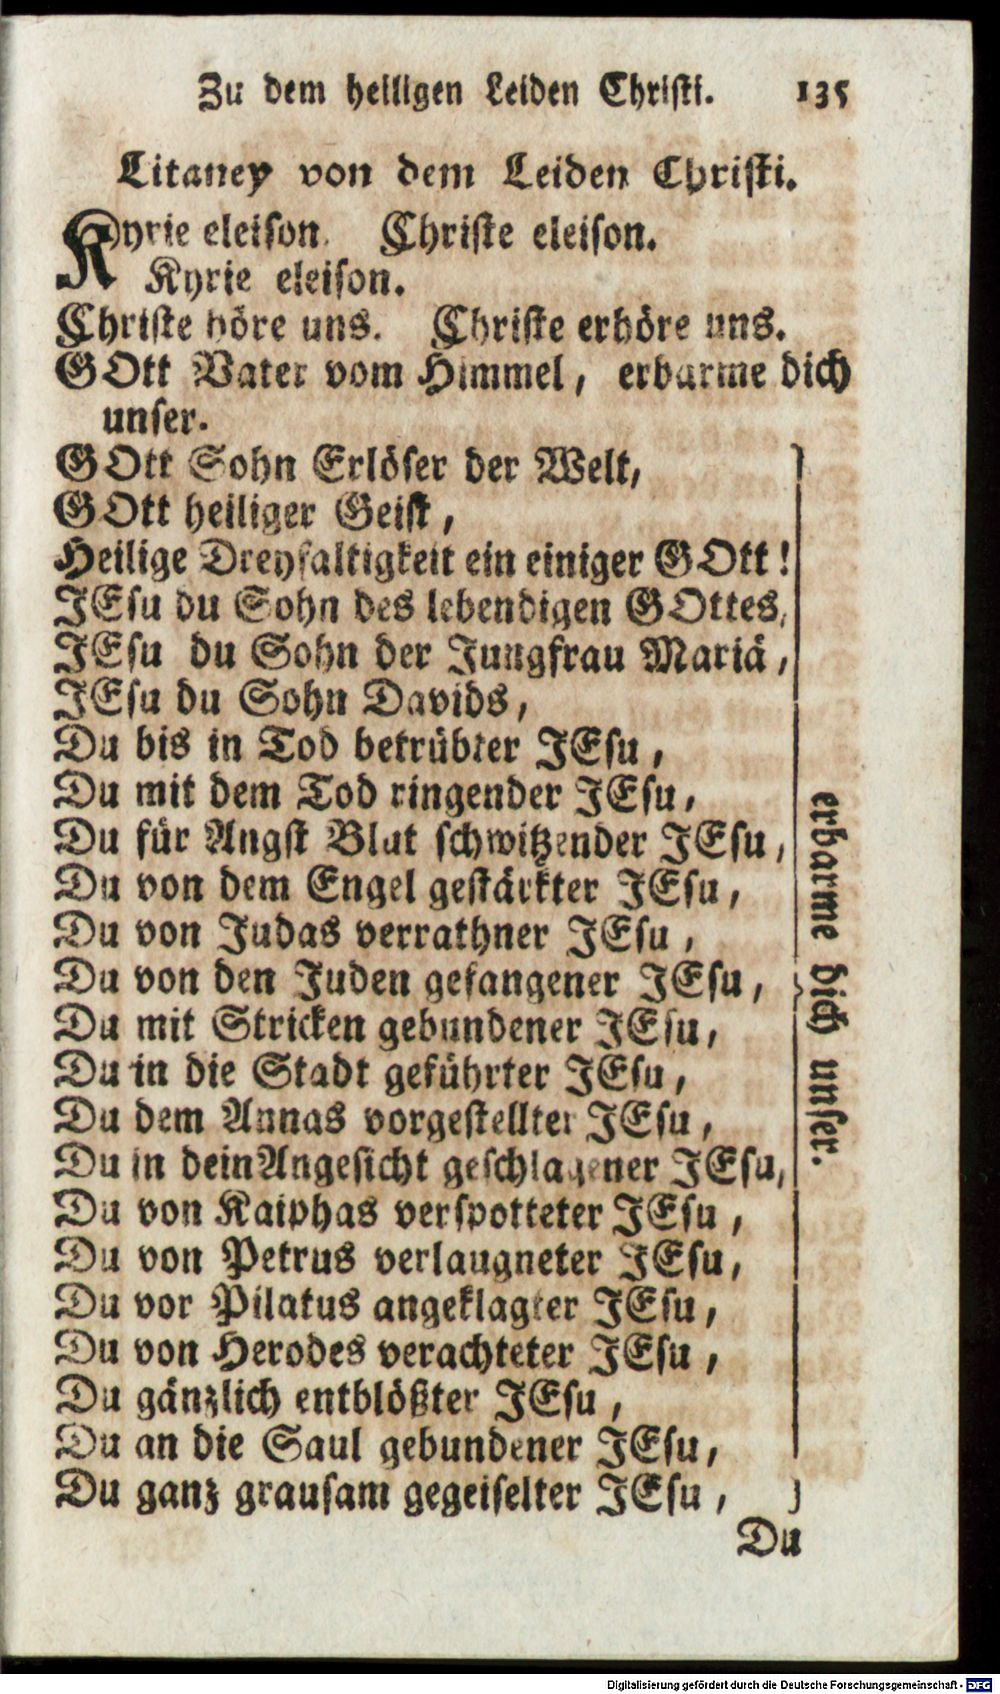 Zu dem heiligen Leiden Christi. 135
Litaney von dem Leiden Christi.
Kyrie eleison. Christe eleison.
Kyrie eleison.
Christe höre uns. Christe erhöre uns.
GOtt Vater vom Himmel, erbarme dich
unser.
GOtt Sohn Erlöser der Welt,
GOtt heiliger Geist,
Heilige Dreyfaltigkeit ein einiger GOtt!
JEsu du Sohn des lebendigen GOttes,
JEsu du Sohn der Jungfrau Mariä,
JEsu du Sohn Davids,
Du bis in Tod betrübter JEsu,
Du mit dem Tod ringender JEsu,
Du für Angst Blut schwitzender JEsu,
Du von dem Engel gestärkter JEsu,
Du von Judas verrathner JEsu,
Du von den Juden gefangener JEsu,
Du mit Stricken gebundener JEsu,
Du in die Stadt geführter JEsu,
Du dem Annas vorgestellter JEsu,
Du in dein Angesicht geschlagener JEsu,
Du von Kaiphas verspotteter JEsu,
Du von Petrus verlaugneter JEsu,
Du vor Pilatus angeklagter JEsu,
Du von Herodes verachteter JEsu,
Du gänzlich entblößter JEsu,
Du an die Saul gebundener JEsu,
Du ganz grausam gegeiselter JEsu,
erbarme dich unser.
Du
Digitalisierung gefördert durch die Deutsche Forschungsgemeinschaft - DFG